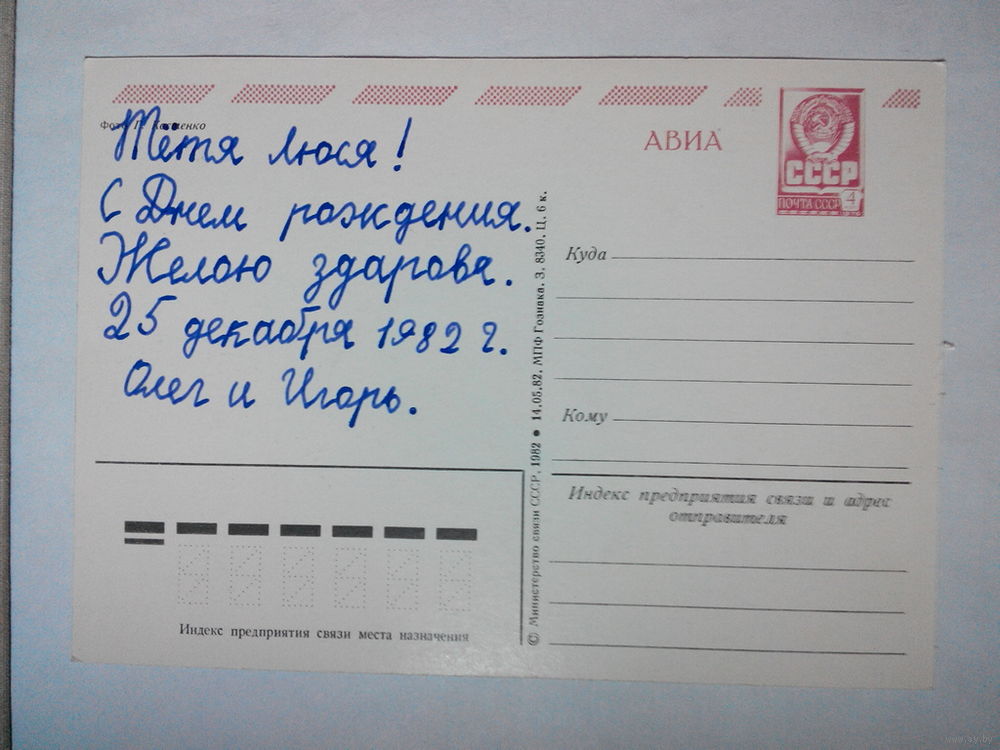 Тётя Люся!
С Днем рождения.
Желою здарове.
25 декабря 1982 г.
Олег и Игорь.
Фото
АВИА
СССР
ПОЧТА СССР
4
Куда
Кому
Индекс предприятия связи и адрес
отправителя
Индекс предприятия связи места назначения
© Министерство связи СССР, 1982 ● 14.05.82. МПФ Гознака, З. 8340, Ц. 6 к.
www.ay.by